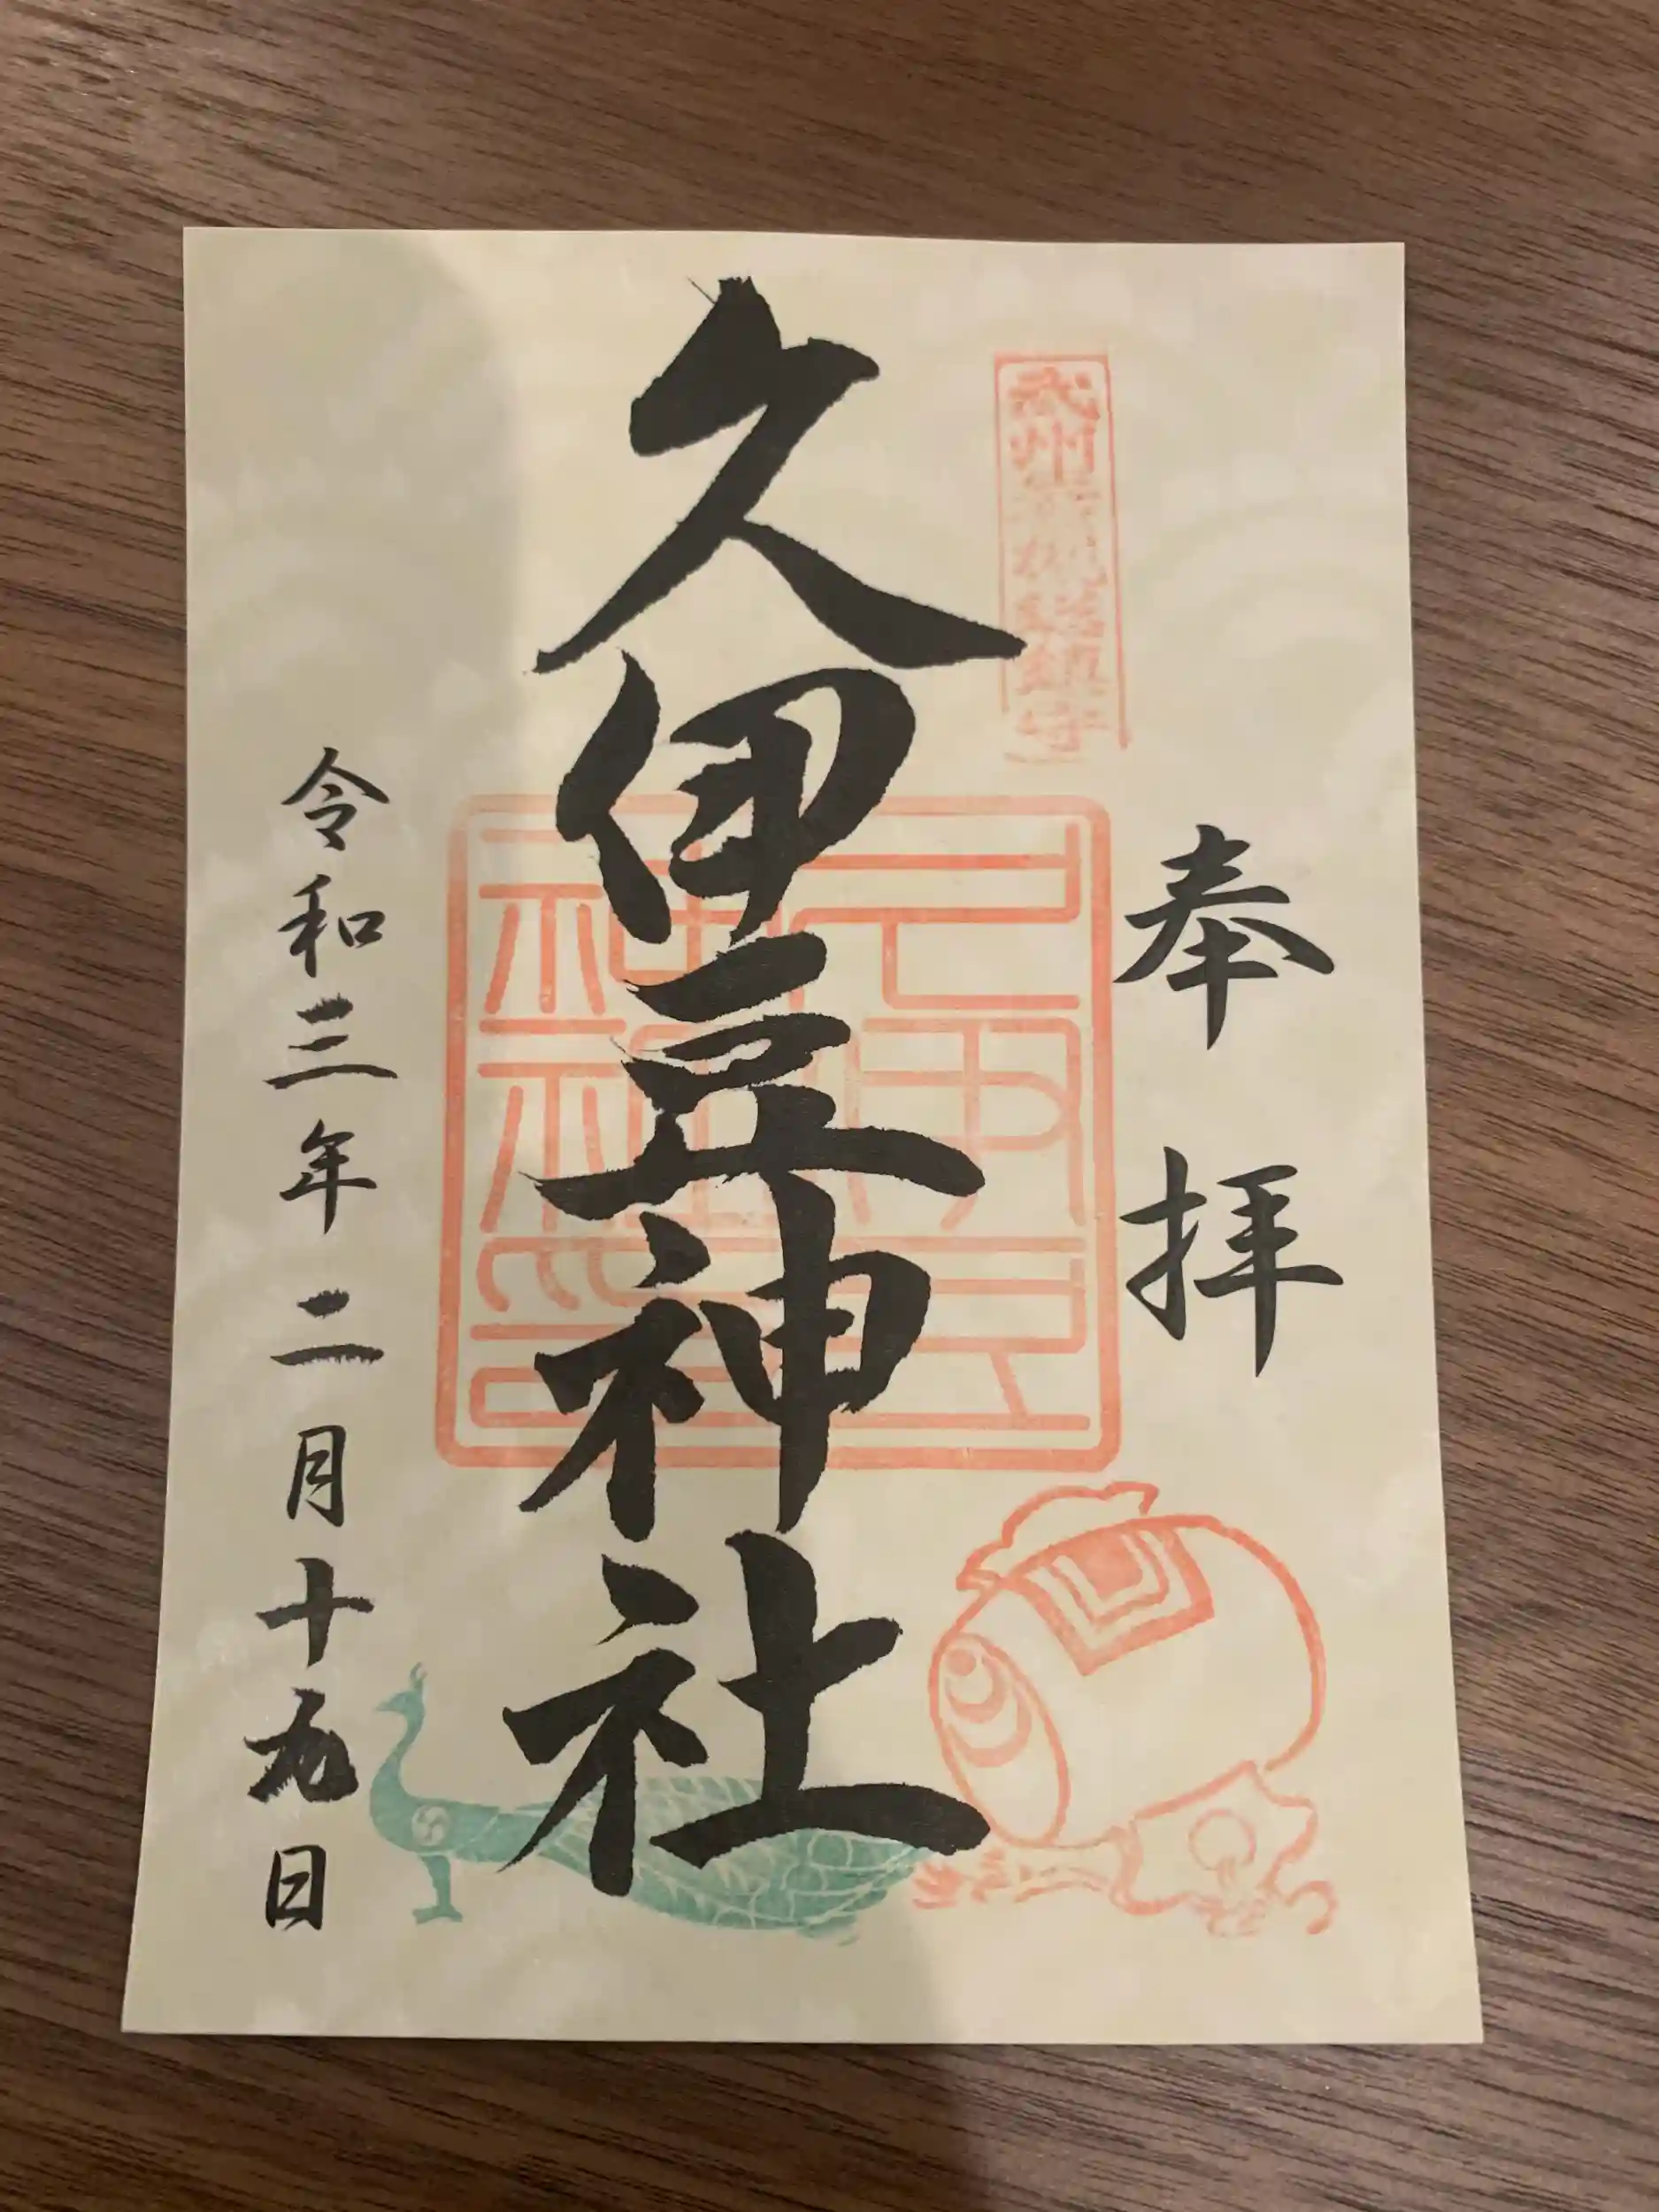 武州岩槻総鎮守
奉拝
久伊豆神社
久伊豆
神社印
令和三年二月十九日